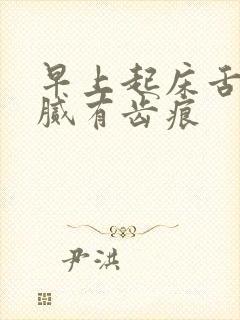 早上起床舌
腻有齿痕
尹洪